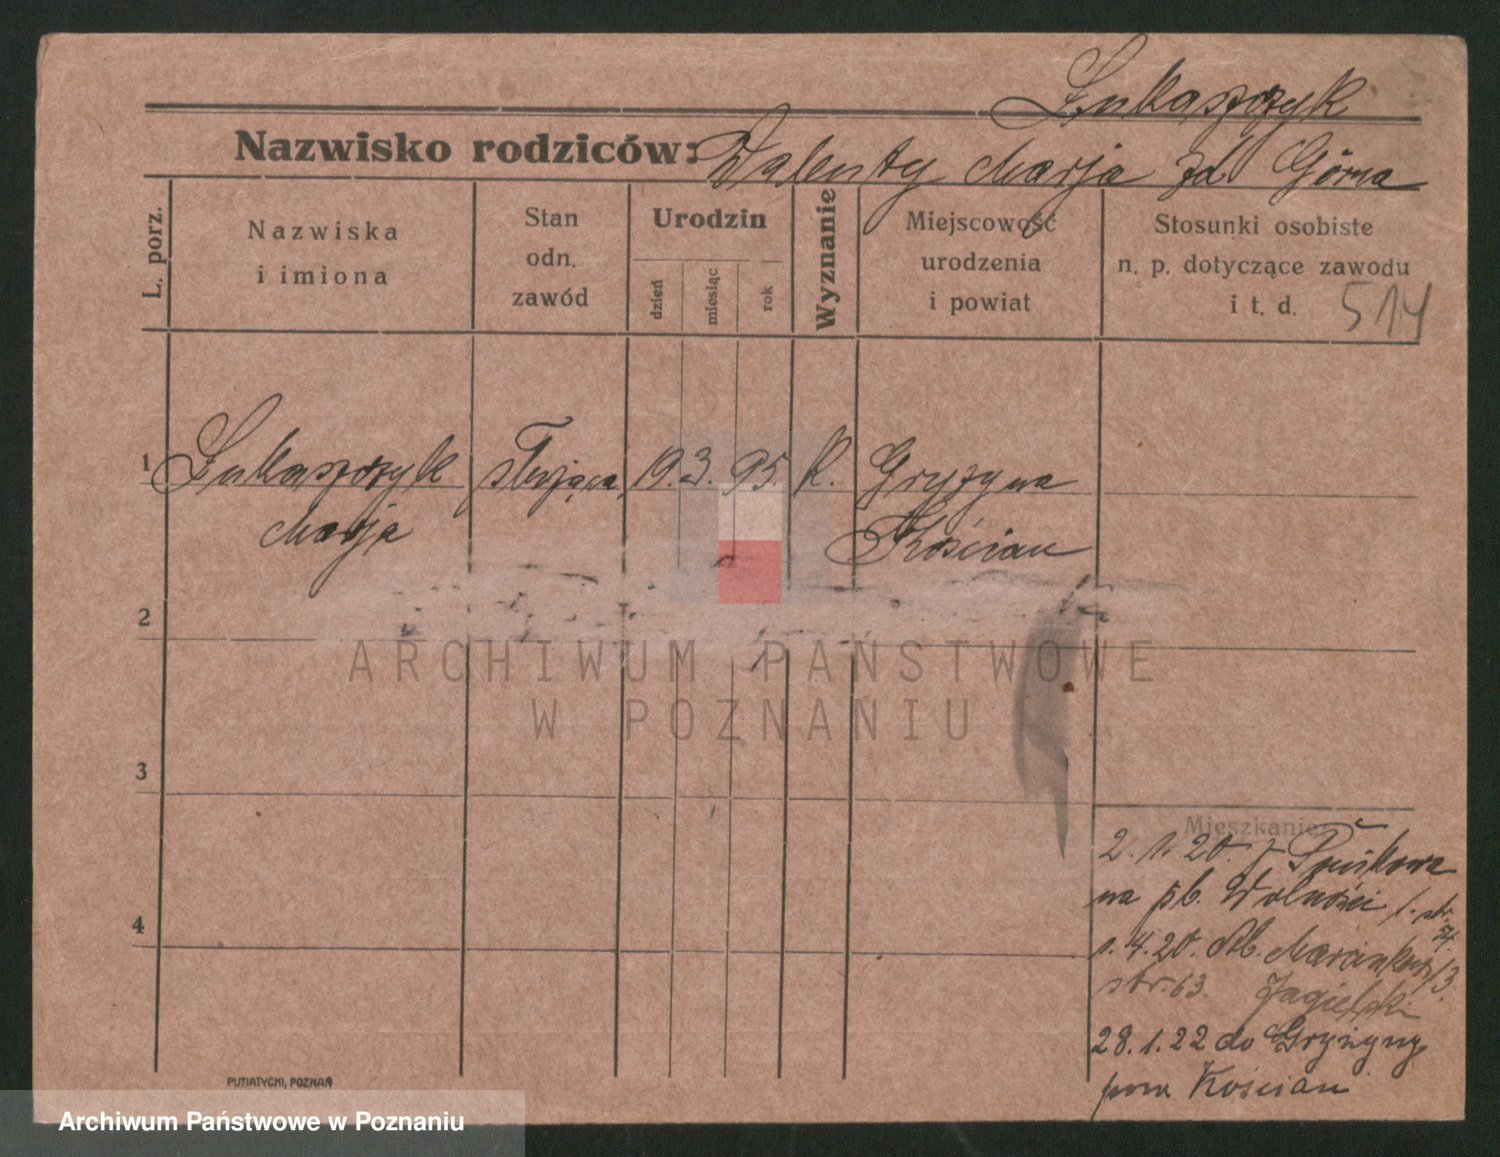 Łukaszczyk
Nazwisko rodziców: Walenty Marja zd Górna
L. porz.
Nazwiska
i imiona
Stan
odn.
zawód
Urodzin
dzień
miesiąc
rok
Wyznanie
Miejscowość
urodzenia
i powiat
Stosunki osobiste
n. p. dotyczące zawodu
i t. d.
514
1 Łukaszczyk służąca 19. 3. 95. K. Gryżyna
Marja Kościan
2
ARCHIWUM PAŃSTWOWE
W POZNANIU
3
Mieszkanie
2. 1. 20. z
na pl. Wolności 1. str.
4
1. 4. 20. Marcinkow 13.
str. 63. Jagielski
28. 1. 22 do Gryżyny
pow Kościan
PUTIATYCKI, POZNAŃ
Archiwum Państwowe w Poznaniu